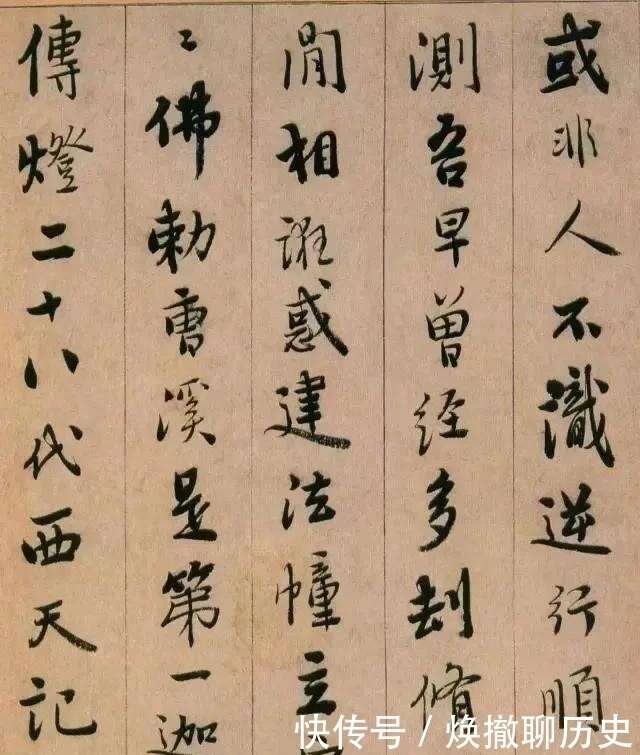 或非人不識逆行順
測吾早曾經多刦脩
閑相誑惑建法幢立
〻佛勅曹溪是第一迦
傳燈二十八代西天記
快传号 / 焕撤聊历史